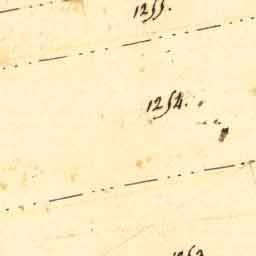 1255.
1254.